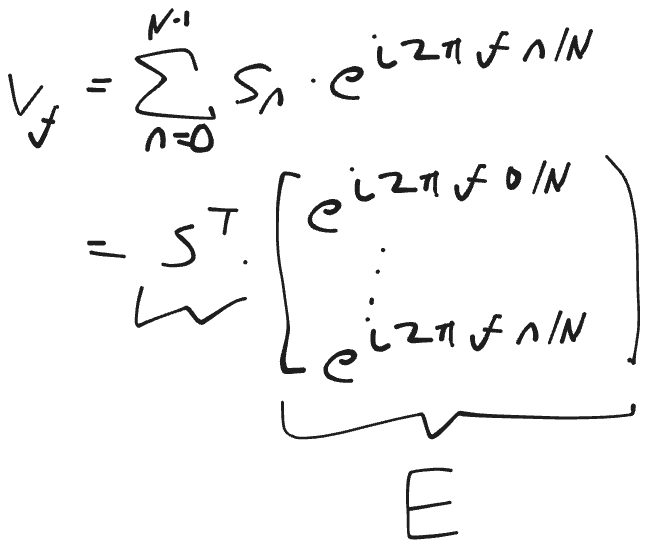 V_f = \sum_{n=0}^{N-1} S_n \cdot e^{i2\pi f n/N}
= S^T \cdot \begin{bmatrix} e^{i2\pi f 0/N} \\ \vdots \\ e^{i2\pi f n/N} \end{bmatrix}
E